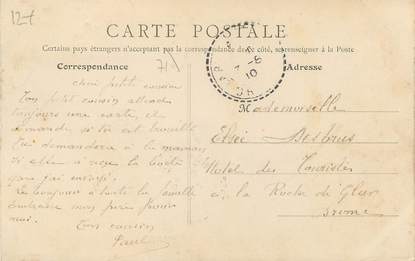 12-f
CARTE POSTALE
Certains pays étrangers n'acceptant pas la correspondance de côté, se renseigner à la Poste
Correspondance
Adresse
7-8
10
chère petite cousine
Ton petit cousin attend
toujours une carte, et
demande si tu est
Tu demandera à ta maman
si elle a reçu la boite
que j'ai envoyé.
Le bonjour à toute la famille
embrasse mon père pour
moi.
Ton cousin
Paul
Mademoiselle
Elsie
Hotel des Touristes
à la Roche de Glun
Drome